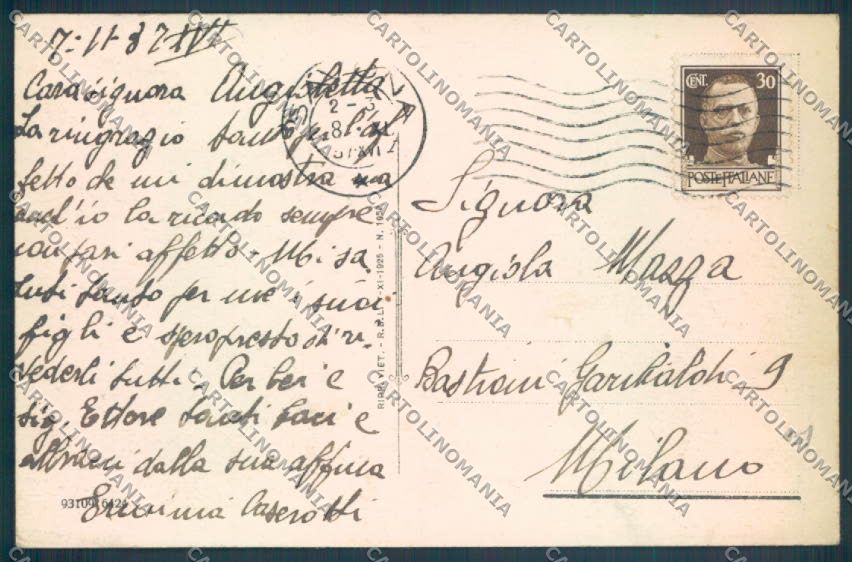 7-11-37 XVI
Cara Signora Angioletta
La ringrazio tanto per l'af
fetto che mi dimostra ma
anch'io la ricordo sempre
con pari affetto. Mi sa
luti tanto per me i suoi
figli e spero presto di ri-
vederli tutti. Per Lei e
sig. Ettore tanti baci e
abbracci dalla sua aff.ma
Erminia Caserotti
93109 6424
RIP. VIET. - R.D.L. 7-XI-1925 - N. 1925
CENT. 30
POSTE ITALIANE
Signora
Angiola Mazza
Bastioni Garibaldi 9
Milano
CARTOLINOMANIA